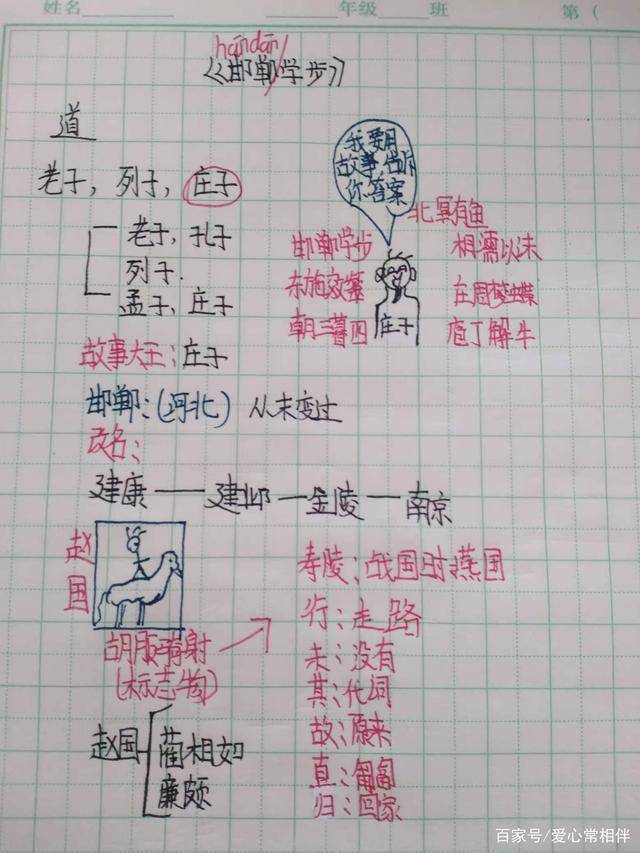 姓名 年级 班 第(
hándān
《邯郸学步》
道
老子，列子，庄子
老子，孔子
列子.
孟子，庄子
故事大王：庄子
我要用
故事告诉
你答案
北冥有鱼
邯郸学步
相濡以沫
东施效颦
庄周梦蝶
朝三暮四
庖丁解牛
庄子
邯郸：(河北) 从未变过
改名：
建康——建邺—金陵—南京
赵国
胡服骑射
(标志物)
赵国
蔺相如
廉颇
寿陵：战国时燕国
行：走路
未：没有
其：代词
故：原来
直：匍匐
归：回家
百家号/爱心常相伴